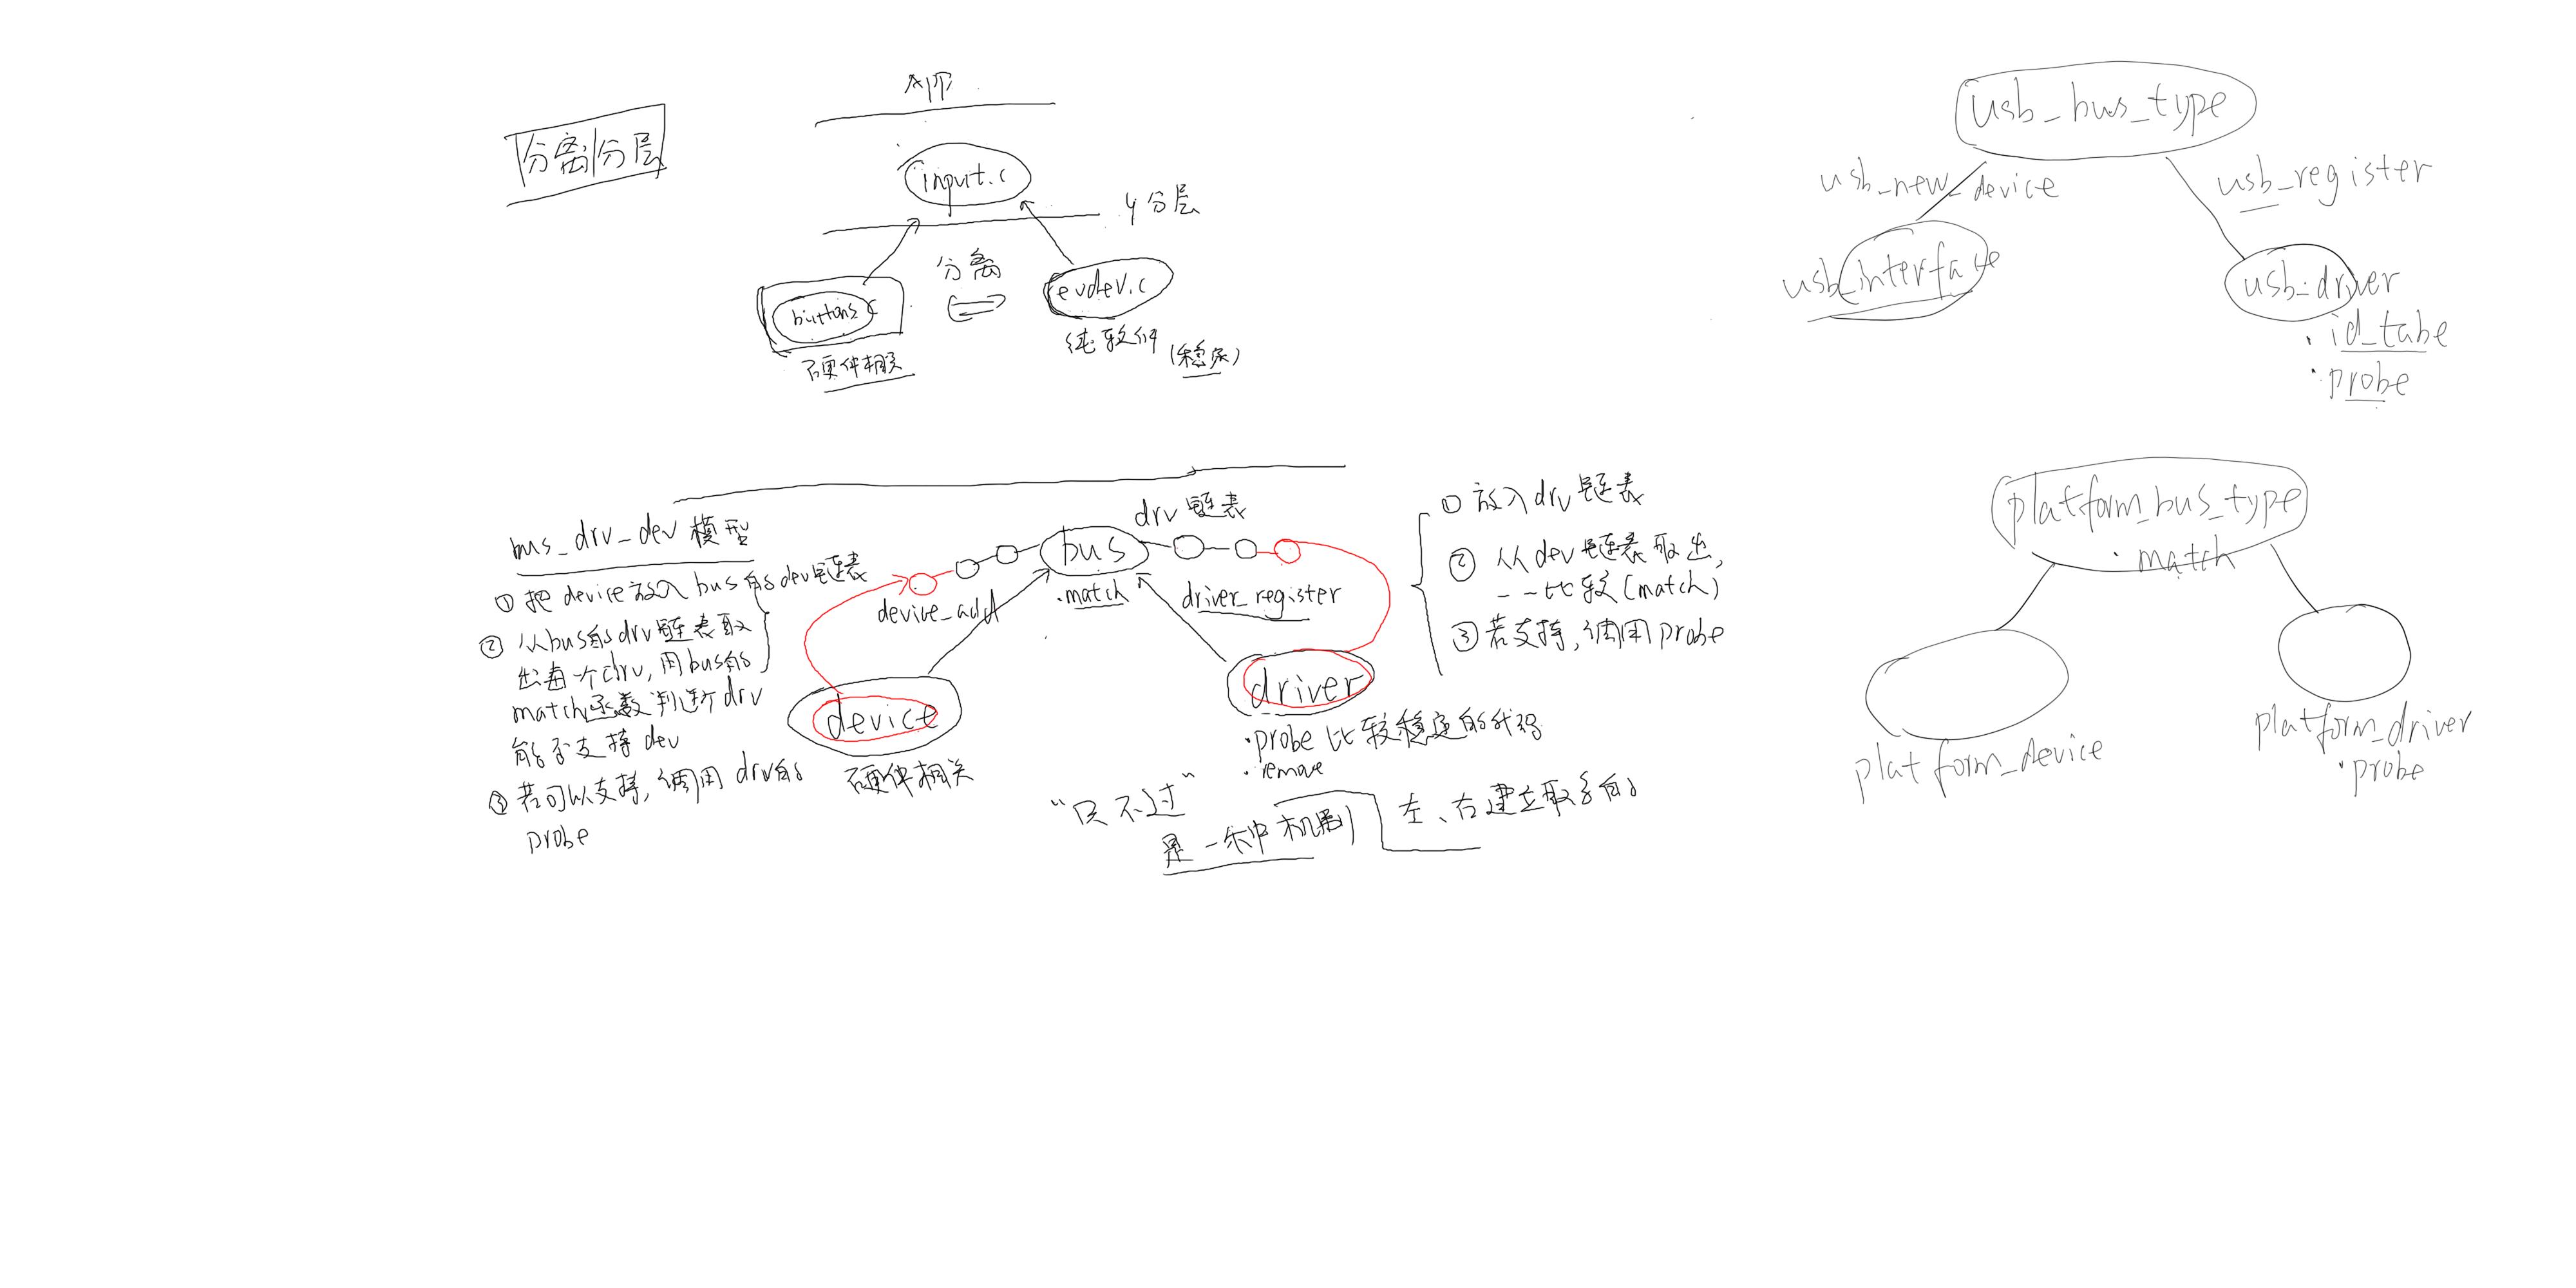 分离分层
APP
input.c
分层
分离
buttons.c
evdev.c
硬件相关
纯软件 (稳定)
bus_drv_dev 模型
① 把 device 放入 bus的dev链表
② 从bus的drv链表取
出每一个drv, 用bus的
match函数判断drv
能否支持dev
③ 若可以支持, 调用drv的
probe
drv 链表
bus
.match
device_add
driver_register
device
硬件相关
driver
.probe 比较稳定的代码
.remove
① 放入 drv 链表
② 从dev链表取出,
一一比较(match)
③ 若支持, 调用 probe
“只不过”
是一种机制
左、右建立联系的
usb_bus_type
usb_new_device
usb_register
usb_interface
usb_driver
.id_tabe
.probe
platform_bus_type
.match
platform_device
platform_driver
.probe